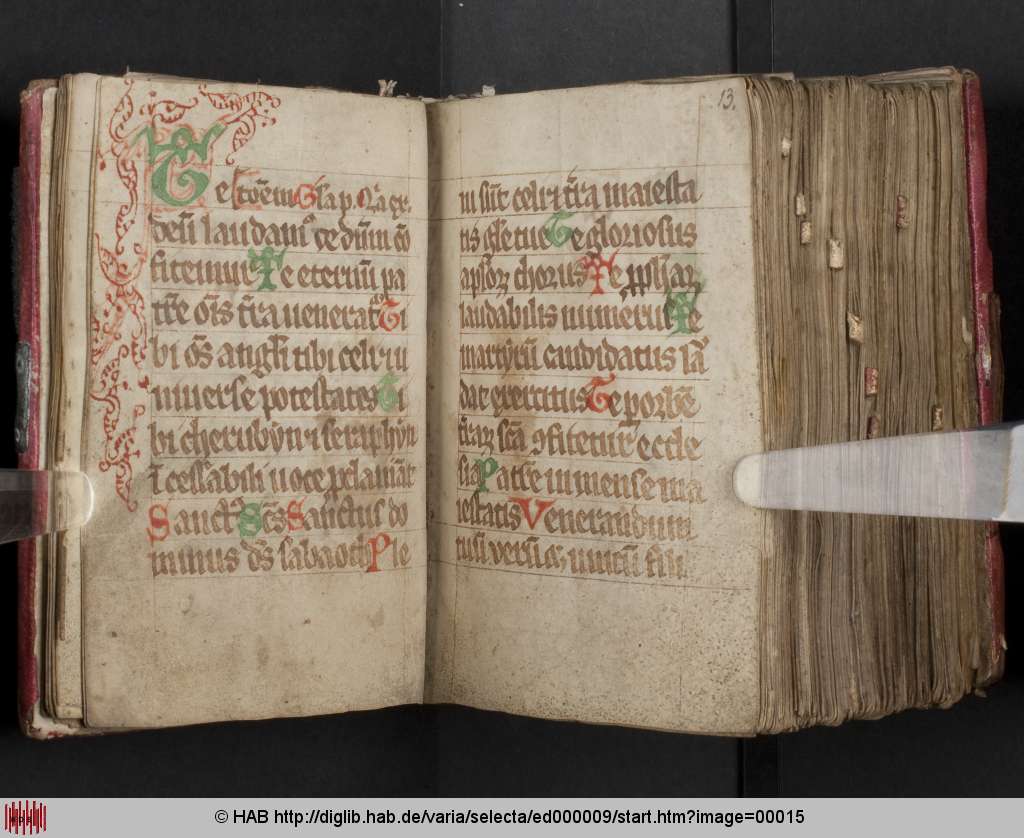 Te
deu laudam⁹ te dnm co
fitemur Te eternu pa
trē oīs t̄ra ueneratᷣ Ti
bi oēs angeli tibi celi ⁊ u
niuerse potestates Ti
bi cherubyn ⁊ seraphyn
ī cessabili uoce p̱clamāt
Sanctꝰ Scs̄ Sanctus do
minus ds̄ sabaoth Ple
13.
ni sūt celi ⁊ t̄ra maiesta
tis gl̄e tue Te gloriosus
apl̄oꝝ chorus Te ꝓph̄aꝝ
laudabilis numerus Te
martyrū candidatus lau
dat exercitus Te ꝑ orbē
t̄raꝝ scā ꝯfitetur eccle
sia Patrē inmense ma
iestatis Venerandum
tuū verū ⁊ unicū fili
© HAB http://diglib.hab.de/varia/selecta/ed000009/start.htm?image=00015